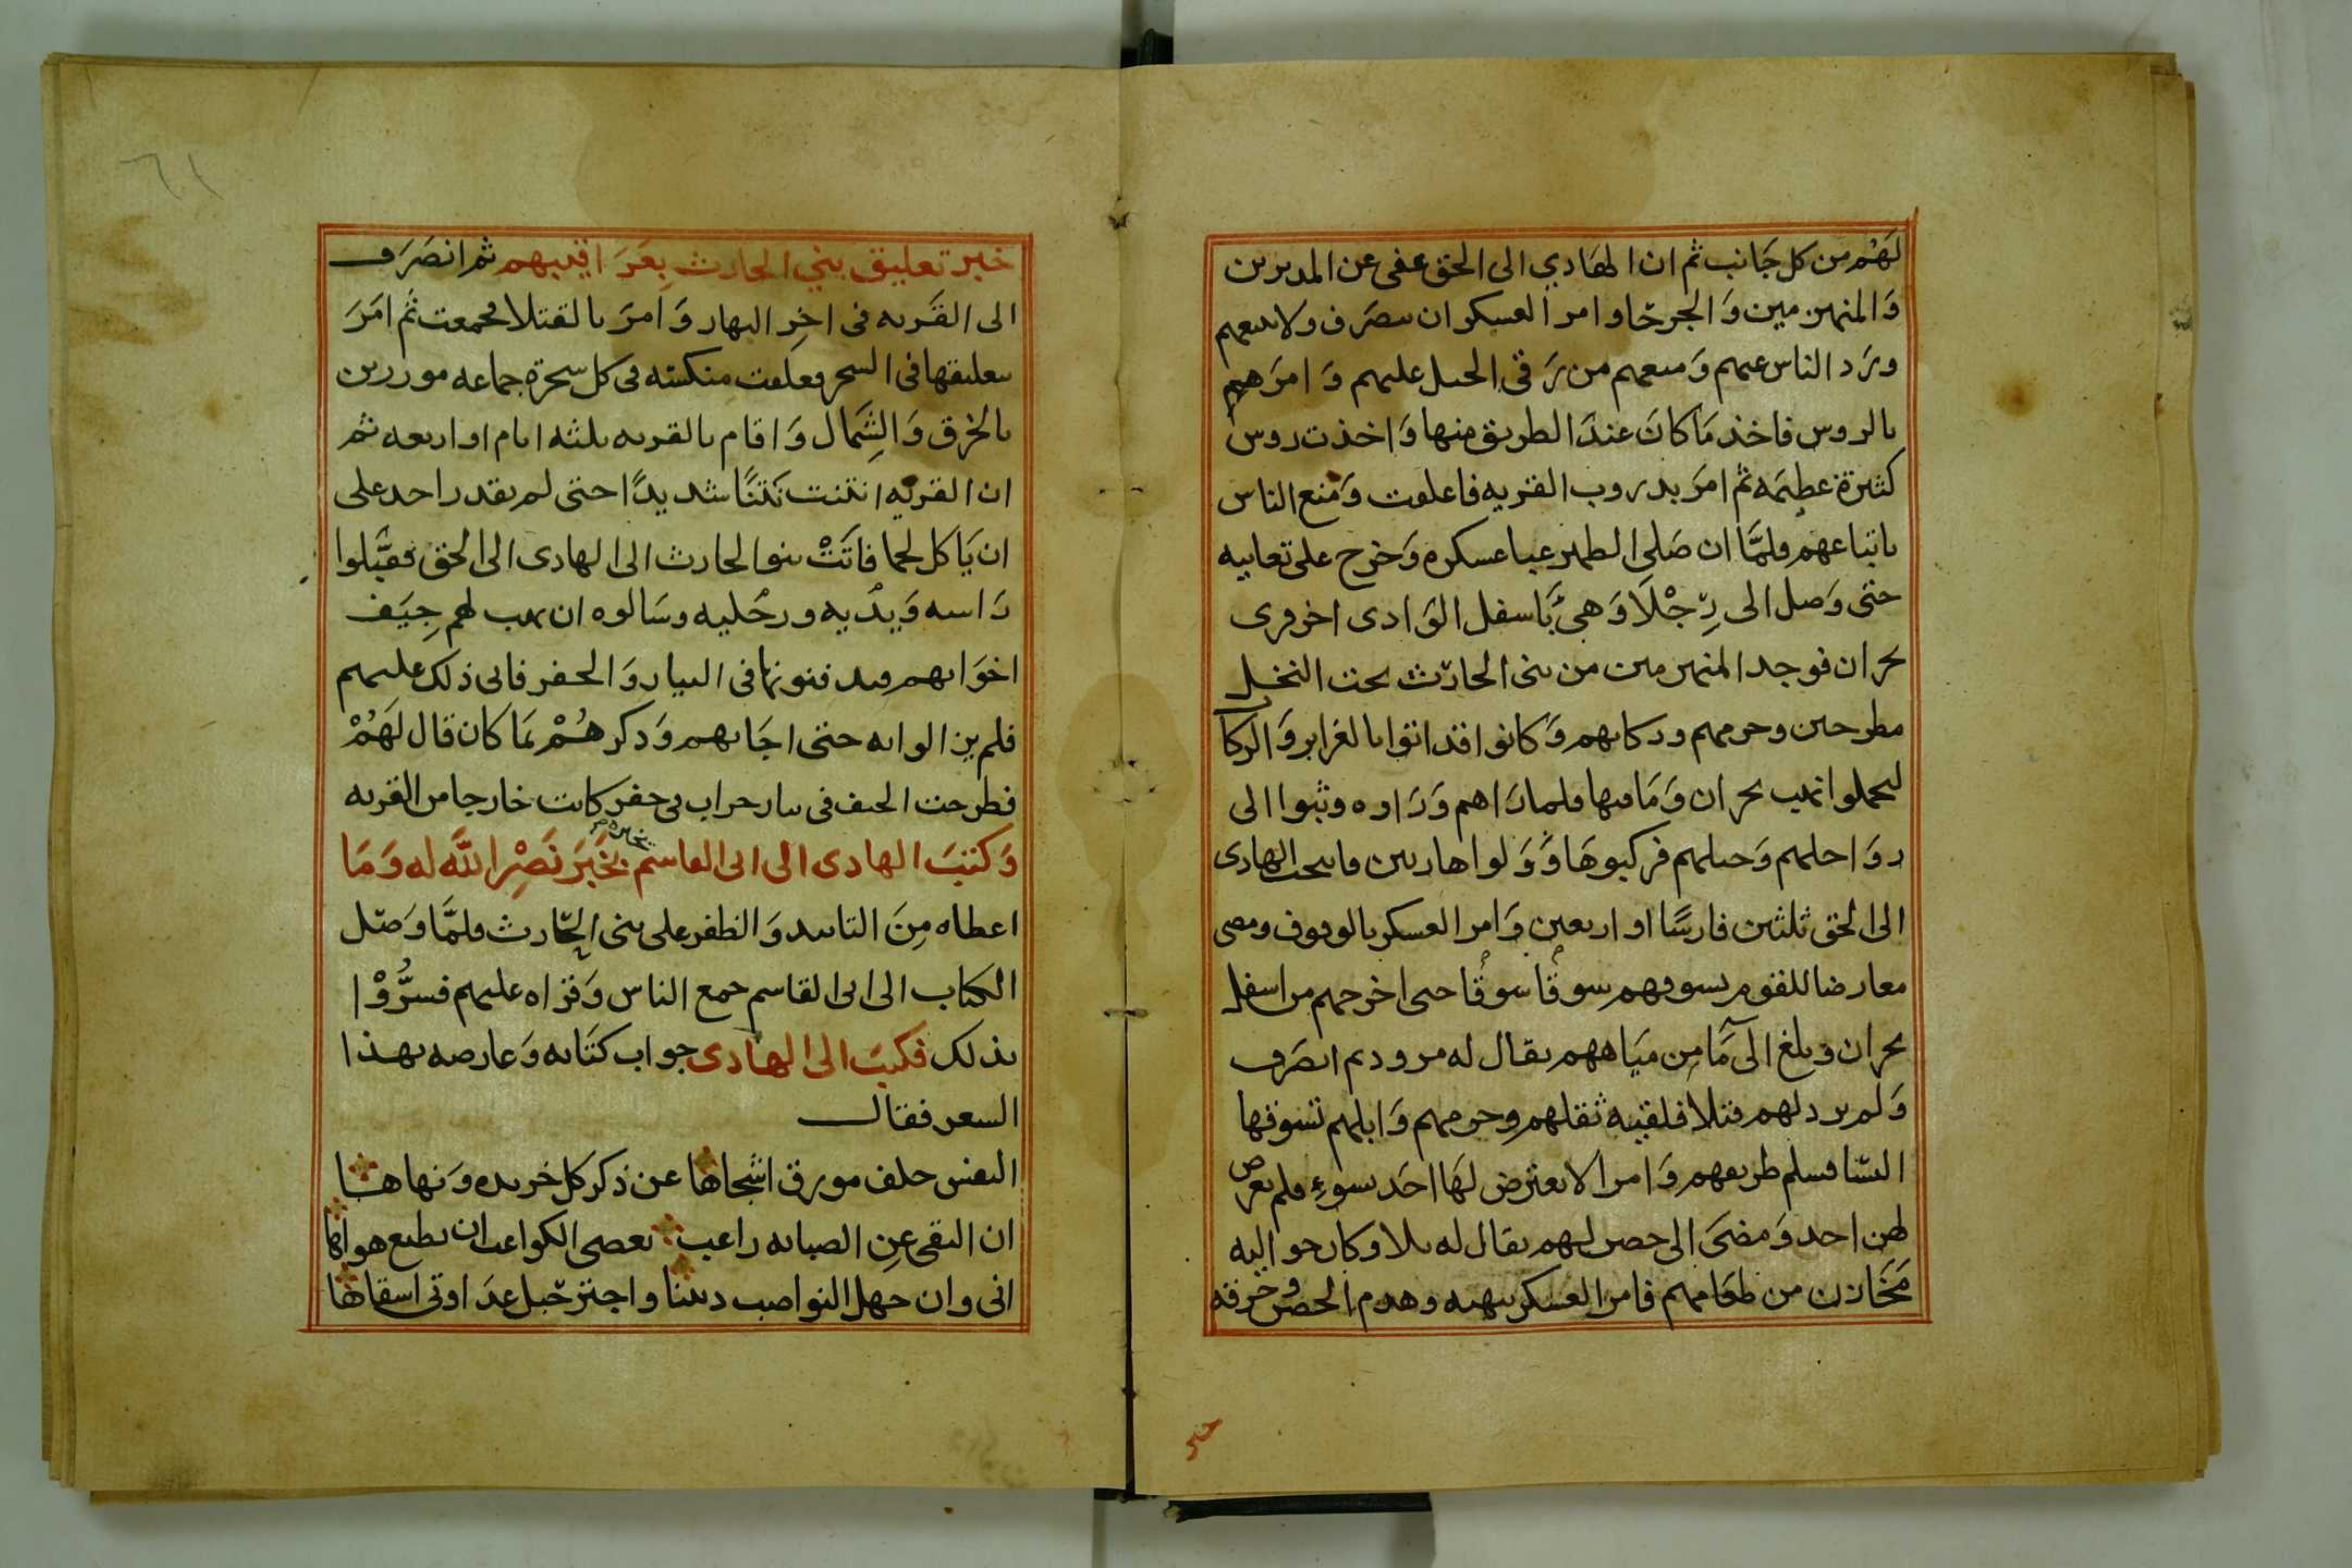 لَهُم من كل جَانب ثم ان الهَادي الى الحق عفى عن المدبرين
وَالمنهزمين وَالجرحَا وامر العسكر ان ينصَرف ولا يتبعهم
ورَد الناس عنهم وَمنعهم من رَقي الجبل عليهم وَامرَهم
بالروس فاخذ مَا كانَ عندَ الطريق منها وَاخذت روس
كثيرة عظيمَه ثم امرَ بدروب القريه فاغلقت وَمنع الناس
باتباعهم فلمَّا ان صَلى الظهر عبا عسكره وَخرج على تعابيه
حتى وَصل الى رِجْلَا وَهي بَاسفل الوَادى اخر قرى
نجران فوجد المنهزمين من بنى الحارث تحت النخل
مطرحين وحرمهم وركابهم وَكانوا قد اتوا بالغراير وَالركا
ليحملوا نهب نجران وَمَا فيها فلما رَاهم وَرَاوه وثبوا الى
روَاحلهم وَخيلهم فركبوهَا وَوَلوا هاربين فانتخب الهادى
الى الحق ثلثين فارسًا او اربعين وَامر العسكر بالوقوف ومضى
معارضا للقوم يسوقهم سوقًا سوقًا حتى اخرجهم من اسفل
نجران وبلغ الى مَا من ميَاههم يقال له مرود ثم انصَرف
وَلم يرد لهم قتلا فلقيه ثقلهم وحرمهم وَابلهم تسوقها
النسَا فسلم طريقهم وَامر الا يعترض لهَا احَد بسوءٍ فلم يعرض
لهن احد وَمضَى الى حصن لهم يقال له ثلا وكان حو اليه
مخَازن من طعَامهم فامر العسكر بنهبه وهدم الحصن وخرقه
خبر
خبر تعليق بني الحارث بِعَرَاقيبهم ثم انصَرَف
الى القَريه فى اخِر النهار وَامرَ بالقتلا فجمعت ثم امَرَ
بتعليقها فى الشجر فعلقت منكسه فى كل شجرة جماعه موزرين
بالخرق وَالشِمَال وَاقام بالقريه ثلثه ايام او اربعه ثم
ان القريه انتنت نَتنًا شديدًا حتى لم يقدر احد على
ان يَاكل لحما فاتَتْ بنو الحارث الى الهادى الى الحق فقبَّلوا
رَاسه وَيدَيه ورجْليه وسَالوه ان يهب لهم جِيَف
اخوَانهم فيدفنونها فى البيار وَالحفر فابى ذلك عليهم
فلم يزالوا به حتى اجَابهم وَذكر هُمْ بمَا كان قال لَهُمْ
فطرحت الجيف فى بيار خراب وفى حفر كانت خارجا من القريه
وَكتبَ الهادى الى ابى القاسم بخَبَرَ نَصْرِ اللَّه له وَمَا
اعطاه مِنَ التاييد وَالظفر على بنى الحَارث فلمَّا وَصَل
الكتاب الى ابى القاسم جمع الناس وَقراه عليهم فسُرُّوْا
بذلك فكتبَ الى الهادى جواب كتَابه وَعارضه بهذا
الشعر فقال
النفس حلف مورق اشجاها عن ذكر كل خريده وَنهاها
ان التقى عنِ الصبابه راغب يعصى الكواعب ان يطيع هواها
انى وان جهل النواصب ديننا واجتز حَبل عدَاوتى اسقاها